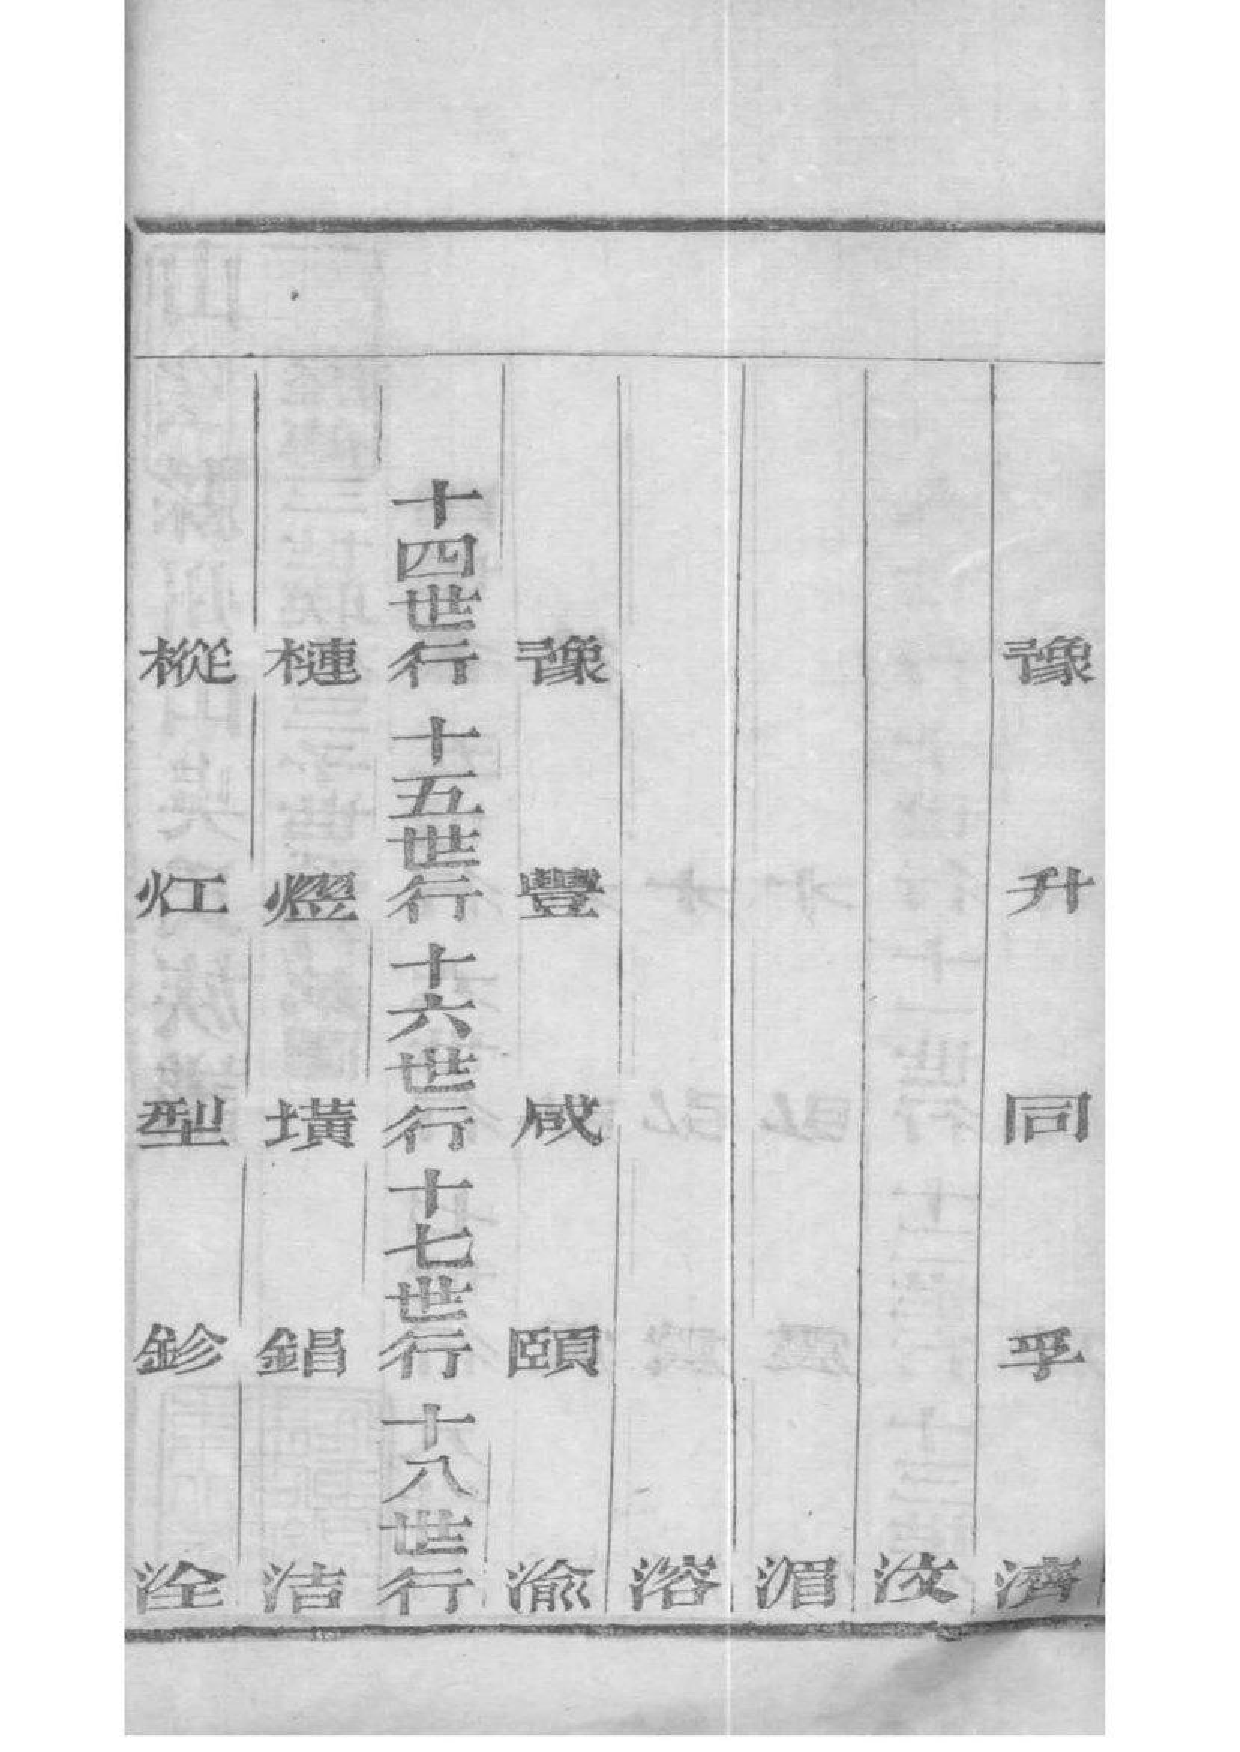 豫升同孚濟
汝
湄
溶
豫豐咸頤渝
十四世行十五世行十六世行十七世行十八世行
槤熞墴錩洁
樅灴型鉁洤